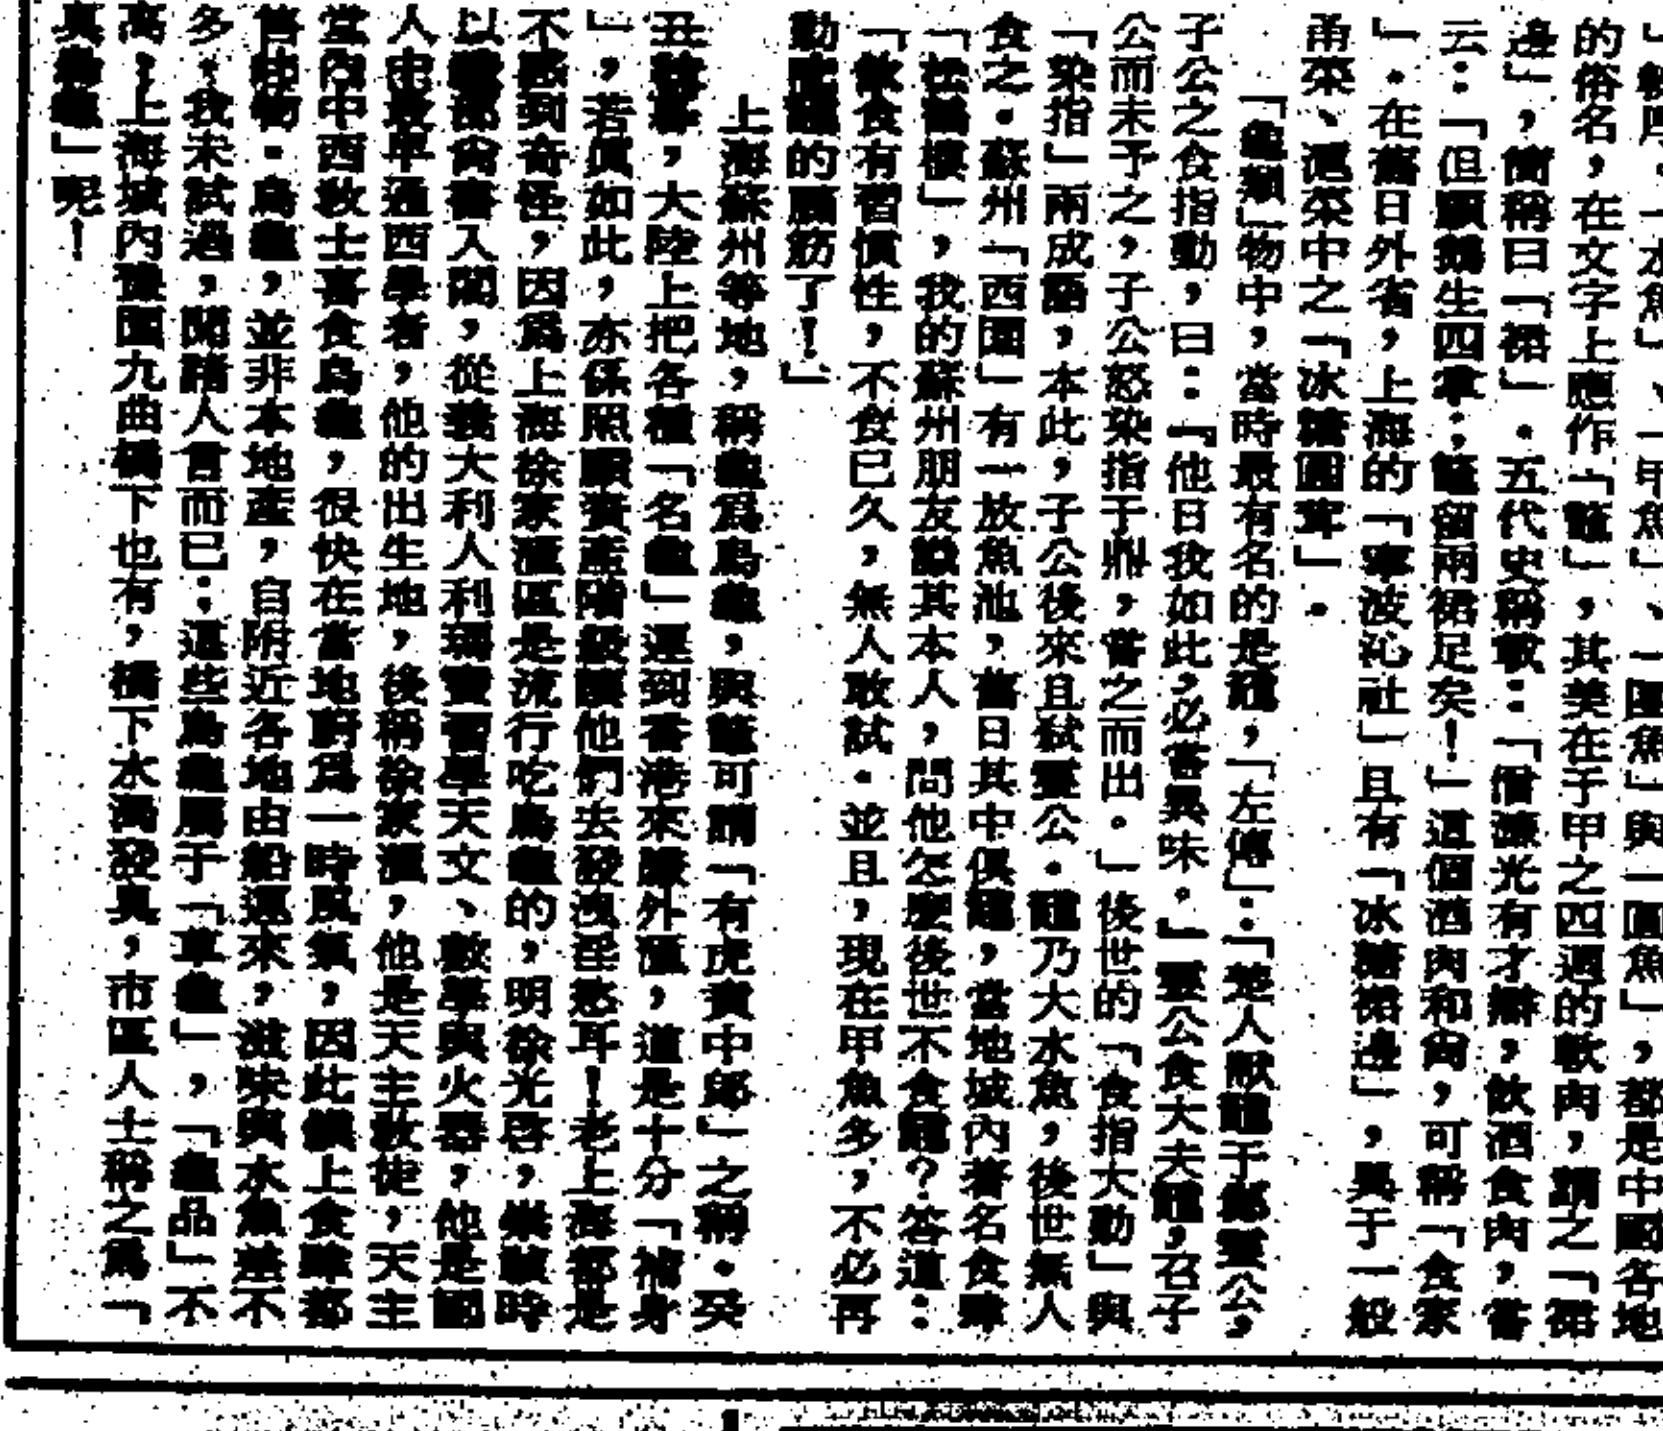 」較厚・「水魚」、「甲魚」、「團魚」與「圓魚」，都是中國各地
的俗名，在文字上應作「鼈」，其美在于甲之四週的軟肉，謂之「裙
邊」，簡稱曰「裙」．五代史稱載：「僧謙光有才辯，飲酒食肉，嘗
云：「但願鵝生四掌；鼈留兩裙足矣！」這個酒肉和尙，可稱「食家
」．在舊日外省，上海的「寧波沁社」且有「冰糖裙邊」，異于一般
甬菜、滬菜中之「冰糖圓菜」．
「龜類」物中，當時最有名的是黿，「左傳」：「楚人獻黿于鄭靈公，
子公之食指動，曰：『他日我如此，必嘗異味。』靈公食大夫黿，召子
公而未予之，子公怒染指于鼎，嘗之而出。」後世的「食指大動」與
「染指」兩成語，本此，子公後來且弒靈公．黿乃大水魚，後世無人
食之．蘇州「西園」有一放魚池，舊日其中俱黿，當地城內著名食肆
「松鶴樓」，我的蘇州朋友識其本人，問他怎麼後世不食黿？答道：
「飲食有習慣性，不食已久，無人敢試．並且，現在甲魚多，不必再
動吃黿的腦筋了！」
上海蘇州等地，稱龜爲烏龜，與鼈可謂「有虎賁中郎」之稱．癸
丑歲暮，大陸上把各種「名龜」運到香港來賺外滙，這是十分「補身
」，若眞如此，亦係照顧資產階級讓他們去發洩淫慾耳！老上海都是
不感到奇怪，因爲上海徐家滙區是流行吃烏龜的，明徐光啓，崇禎時
以禮部尙書入閣，從義大利人利瑪竇習學天文、數學與火器，他是國
人中最早通西學者，他的出生地，後稱徐家滙，他是天主教徒，天主
堂內中西教士喜食烏龜，很快在當地蔚爲一時風氣，因此鎭上食肆都
售此物．烏龜，並非本地產，自附近各地由船運來，滋味與水魚差不
多，我未試過，聞諸人言而已：這些烏龜屬于「草龜」，「龜品」不
高，上海城內豫園九曲橋下也有，橋下水濁發臭，市區人士稱之爲「
眞烏龜」呢！